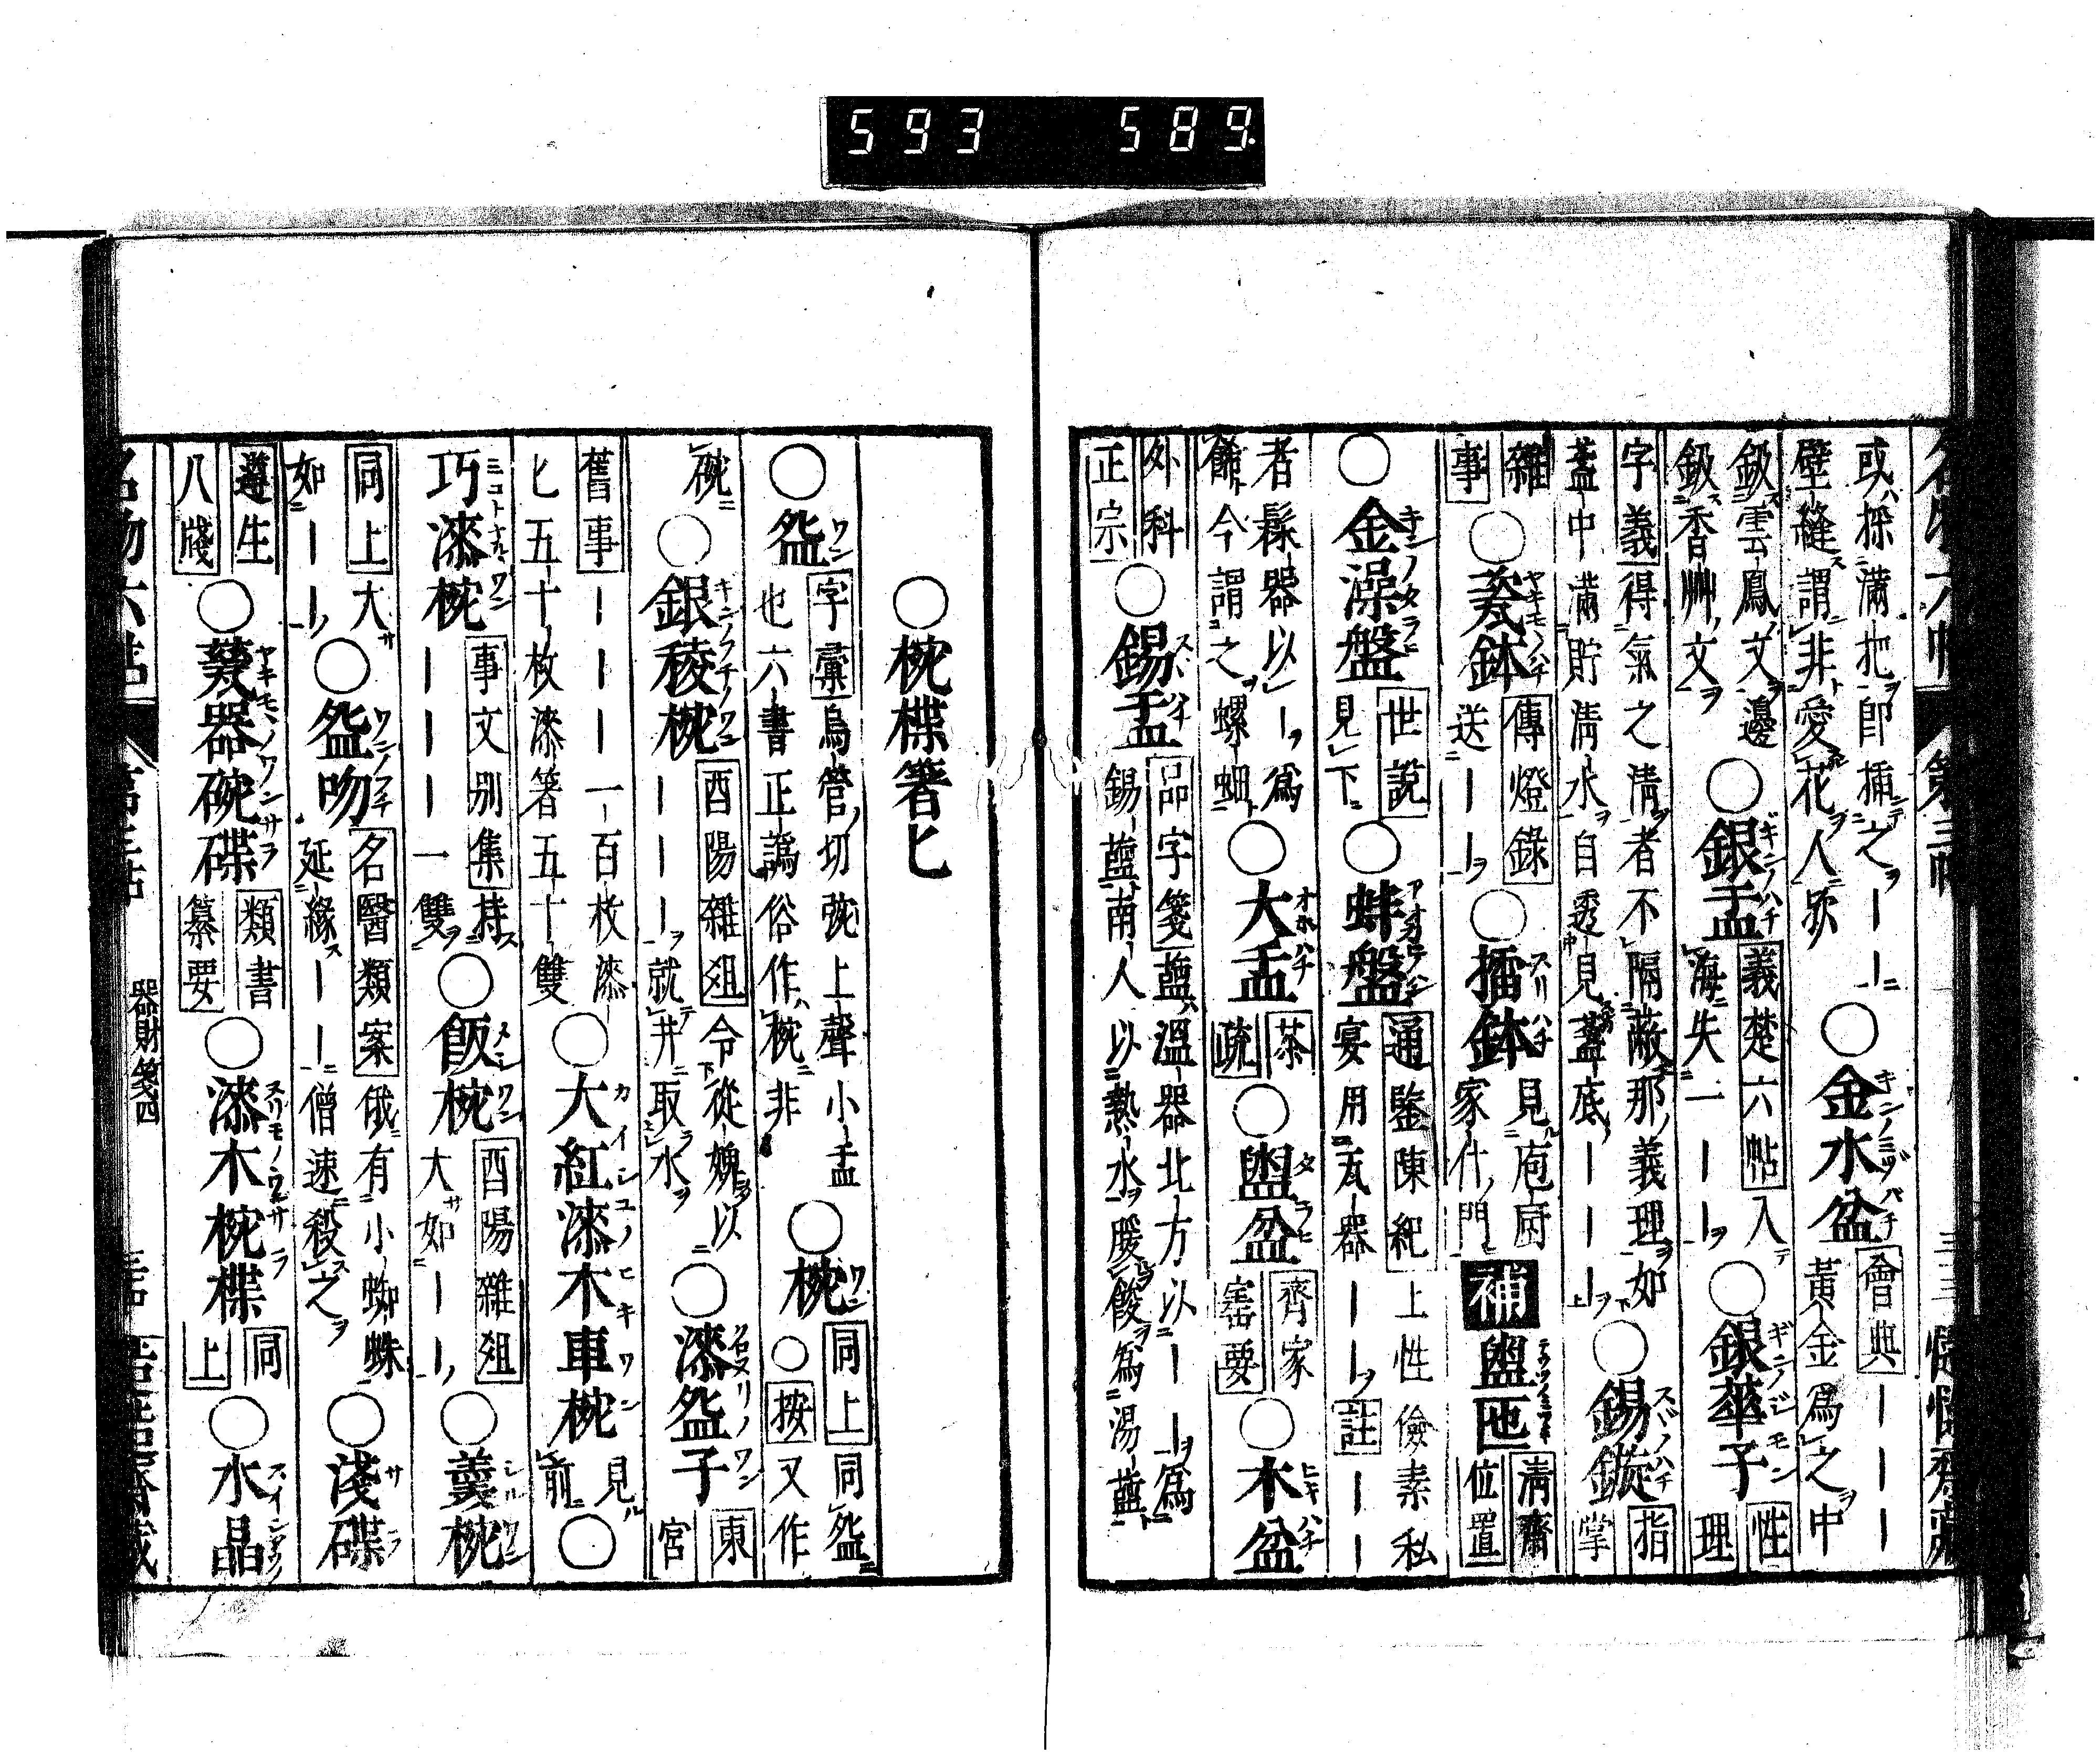 593 589
或採滿把即插之――
壁縫謂非愛花人歟
○金水盆 會典―――
黃金爲之中
鈒雲鳳文邊
鈒香艸文
○銀盂 義楚六帖入
海失二――
○銀華子 性
理
字義得氣之清者不隔蔽那義理如
盞中滿貯清水自透見盞底―――
○錫鏇 指
掌
雜
事
○甆鉢 傳燈錄
送――
○擂鉢 見庖厨
家什門
補 盥匜 清齋
位置
○金澡盤 世說
見下
○蚌盤 通鑒陳紀上性儉素私
宴用瓦器――註――
者髹器以―爲
餙今謂之螺鈿
○大盂 茶
疏
○盥盆 齊家
寶要
○木盆
外科
正宗
○錫盂 品字箋藍溫器北方以――爲
錫藍南人以熱水暖酸爲湯藍
○椀楪箸匕
○盌 字彙烏管切豌上聲小盂
也六書正譌俗作椀非
○椀 同上同盌
○按又作
碗
○銀稜椀 酉陽雜俎令從婢以
―――就井取水
○漆盌子 東
宮
舊事――一百枚漆
匕五十枚漆箸五十雙
○大紅漆木車椀 見
前
○
巧漆椀 事文別集持
―――一雙
○飯椀 酉陽雜俎
大如――
○羹椀
同上大
如――
○盌吻 名醫類案俄有小蜘蛛
延緣――僧速殺之
○淺碟
遵生
八牋
○甆器碗碟 類書
纂要
○漆木椀楪 同
上
○水晶
名物六帖 第三帖 器財箋四